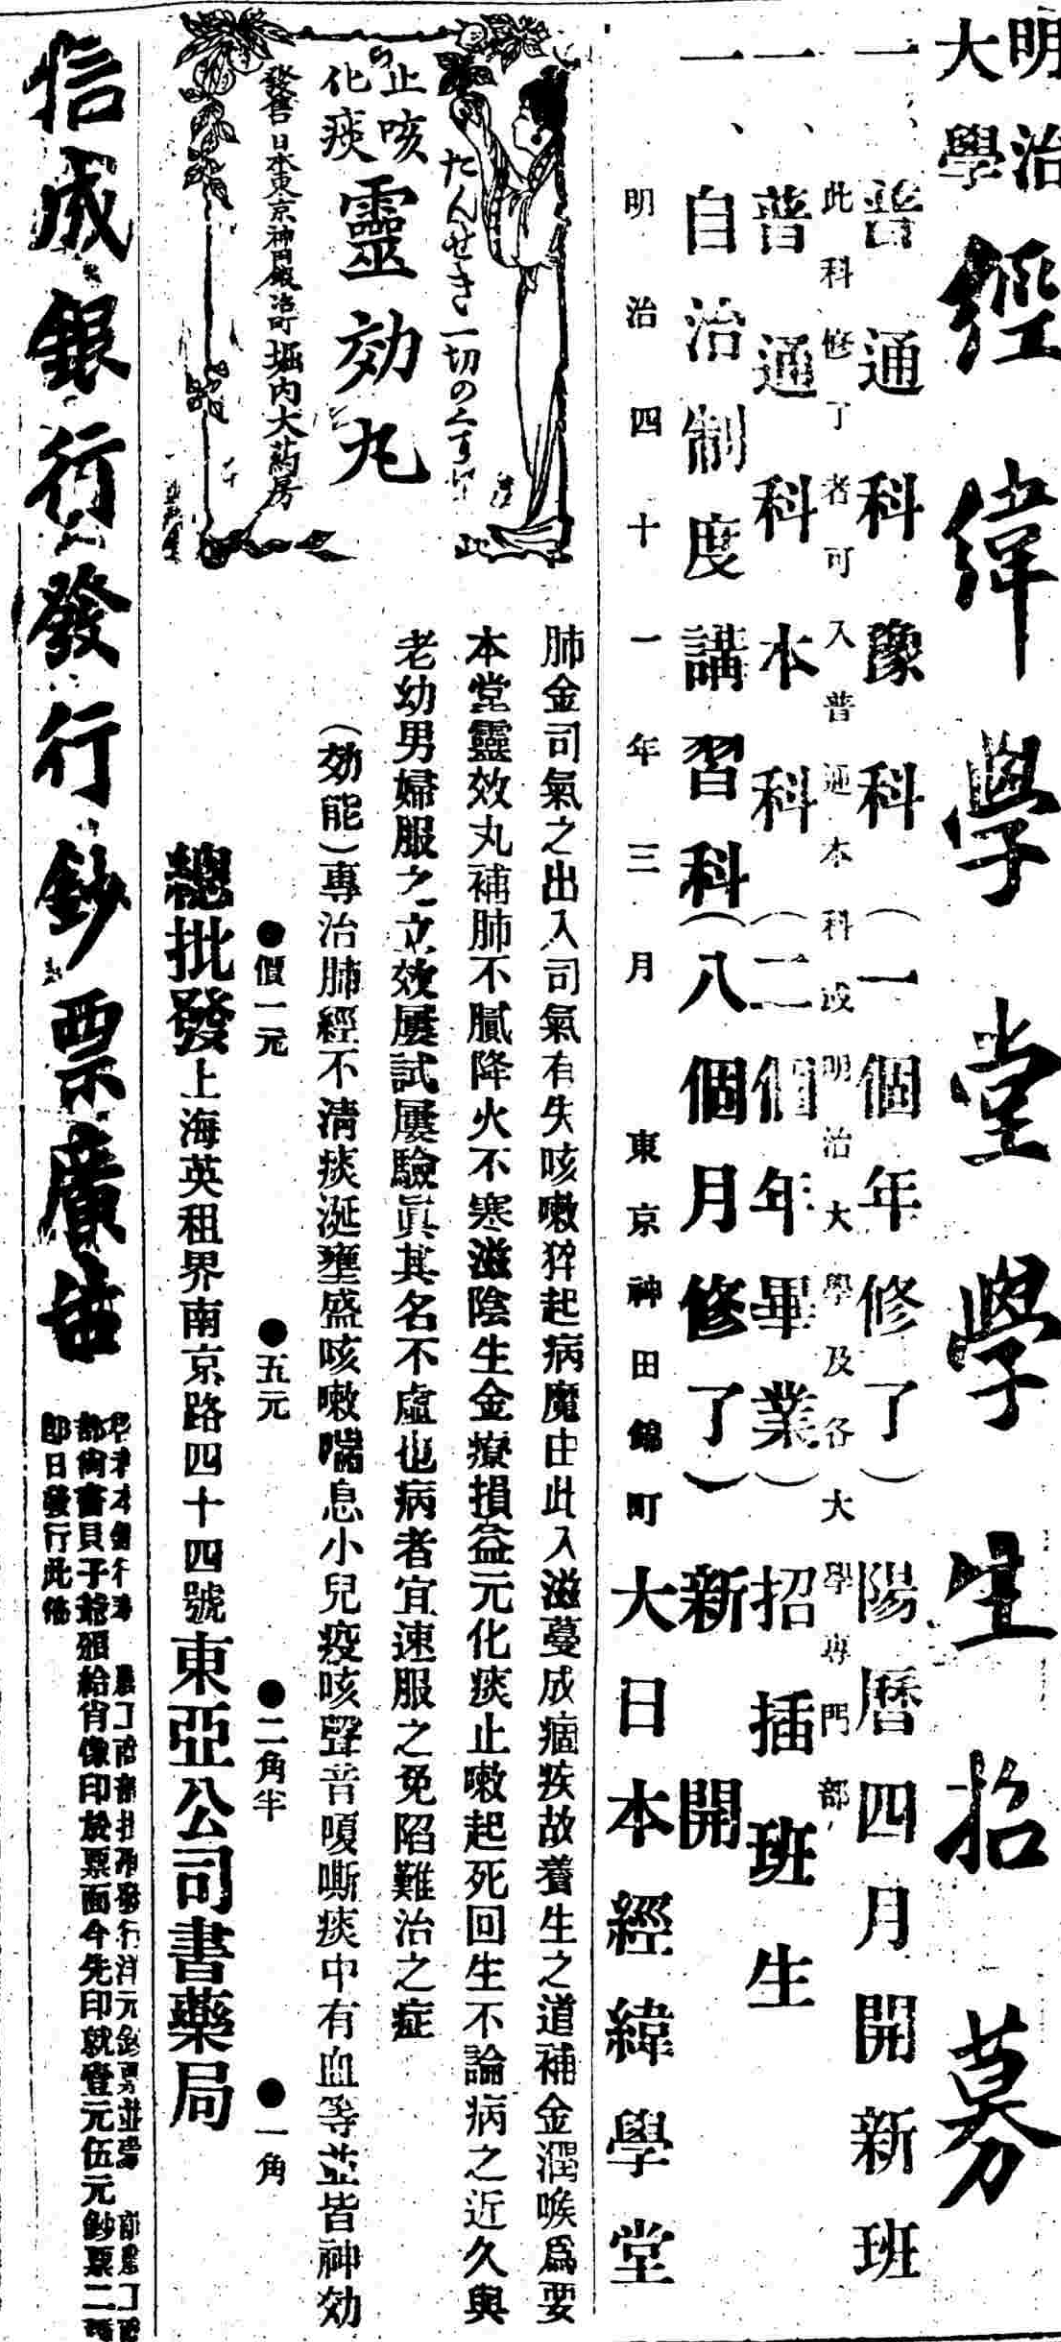 明治大學經緯學堂學生招募
一、普通科豫科（一個年修了）陽曆四月開新班
此科修了者可入普通本科或明治大學及各大學專門部
一、普通科本科（二個年畢業）招插班生
一、自治制度講習科（八個月修了）新開
明治四十一年三月 東京神田錦町 大日本經緯學堂
たんせき一切のくすり
止咳化痰 靈効丸
發售日本東京神田鍛冶町堀内大葯房
肺金司氣之出入司氣有失咳嗽猝起病魔由此入滋蔓成痼疾故養生之道補金潤喉爲要
本堂靈效丸補肺不膩降火不寒滋陰生金療損益元化痰止嗽起死回生不論病之近久與
老幼男婦服之立效屢試屢驗眞其名不虛也病者宜速服之免陷難治之症
（効能）專治肺經不清痰涎壅盛咳嗽喘息小兒疫咳聲音嗄嘶痰中有血等並皆神効
●價一元 ●五元 ●二角半 ●一角
總批發上海英租界南京路四十四號東亞公司書藥局
信成銀行發行鈔票廣告
部尚書貝子爺頒給肖像印於票面今先印就壹元伍元鈔票二種
即日發行此佈